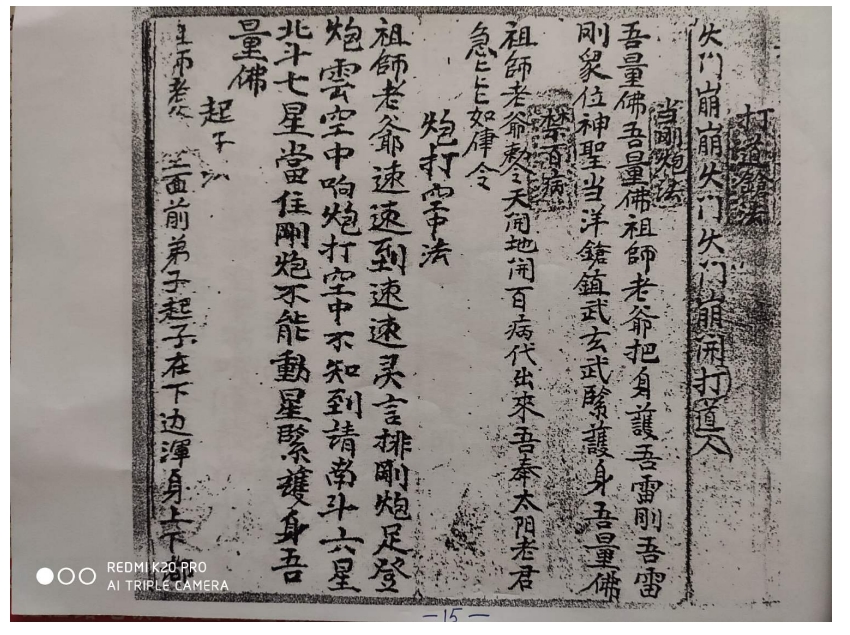 打道鎗法
失门崩崩失门失门崩開打道人
当剛炮法
吾量佛吾量佛祖師老爺把身護吾雷剛吾雷
剛衆位神聖当洋鎗鎮武玄武緊護身吾量佛
禁百病
祖師老爷敕令天開地開百病代出來吾奉太阳老君
急上上如律令
炮打空中法
祖師老爺速速到速速灵言排剛炮足登
炮雲空中响炮打空中不知到請南斗六星
北斗七星當住剛炮不能動星緊護身吾
量佛
起子
面前弟子起子在下边渾身上下
REDMI K20 PRO
AI TRIPLE CAMERA
-15-